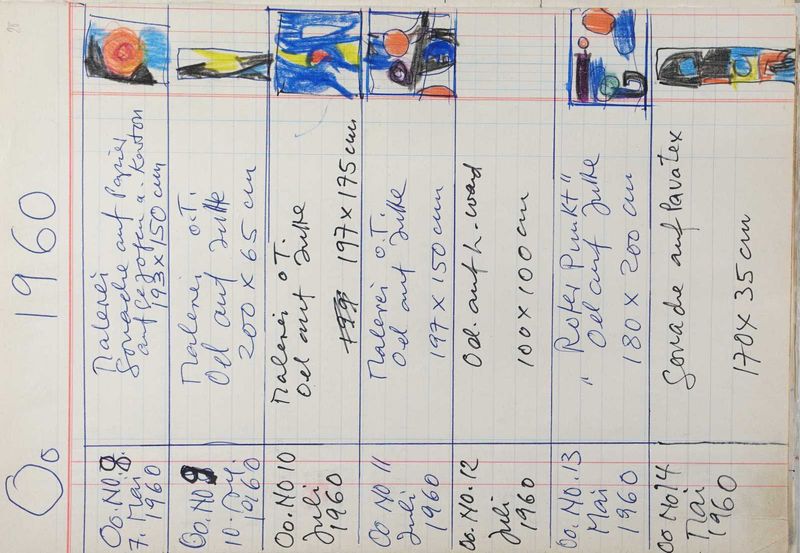 Oo 1960
Oo. NO 8.
7. Mai
1960
Malerei
Gouache auf Papier
aufgezogen a. Karton
193 x 150 cm
Oo. NO 9
10.
1960
Malerei o.T.
Oel auf Jutte
200 x 65 cm
Oo. NO 10
Juli
1960
Malerei o.T.
Oel auf Jutte
197 x 175 cm
Oo NO 11
Juli
1960
Malerei o.T.
Oel auf Jutte
197 x 150 cm
Oo. NO. 12
Juli
1960
Oel auf L.wand
100 x 100 cm
Oo. NO. 13
Mai
1960
„Roter Punkt"
Oel auf Jutte
180 x 200 cm
Oo No 14
Mai
1960
Gouache auf Pavatex
170 x 35 cm